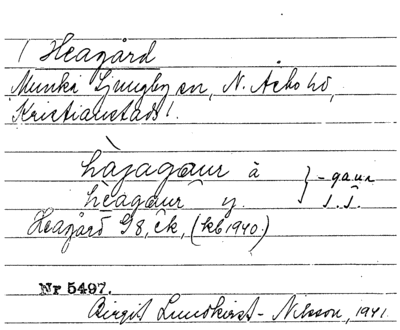 1 Heagård
Munka Ljungby sn, N. Åsbo hd,
Kristianstads l.
hàjagaur ä } -gaur
hèagaur y. s.s.
Heagård G8, ek, (kb 1940.)
Nr 5497.
Birgit Lundkvist-Nilsson, 1941